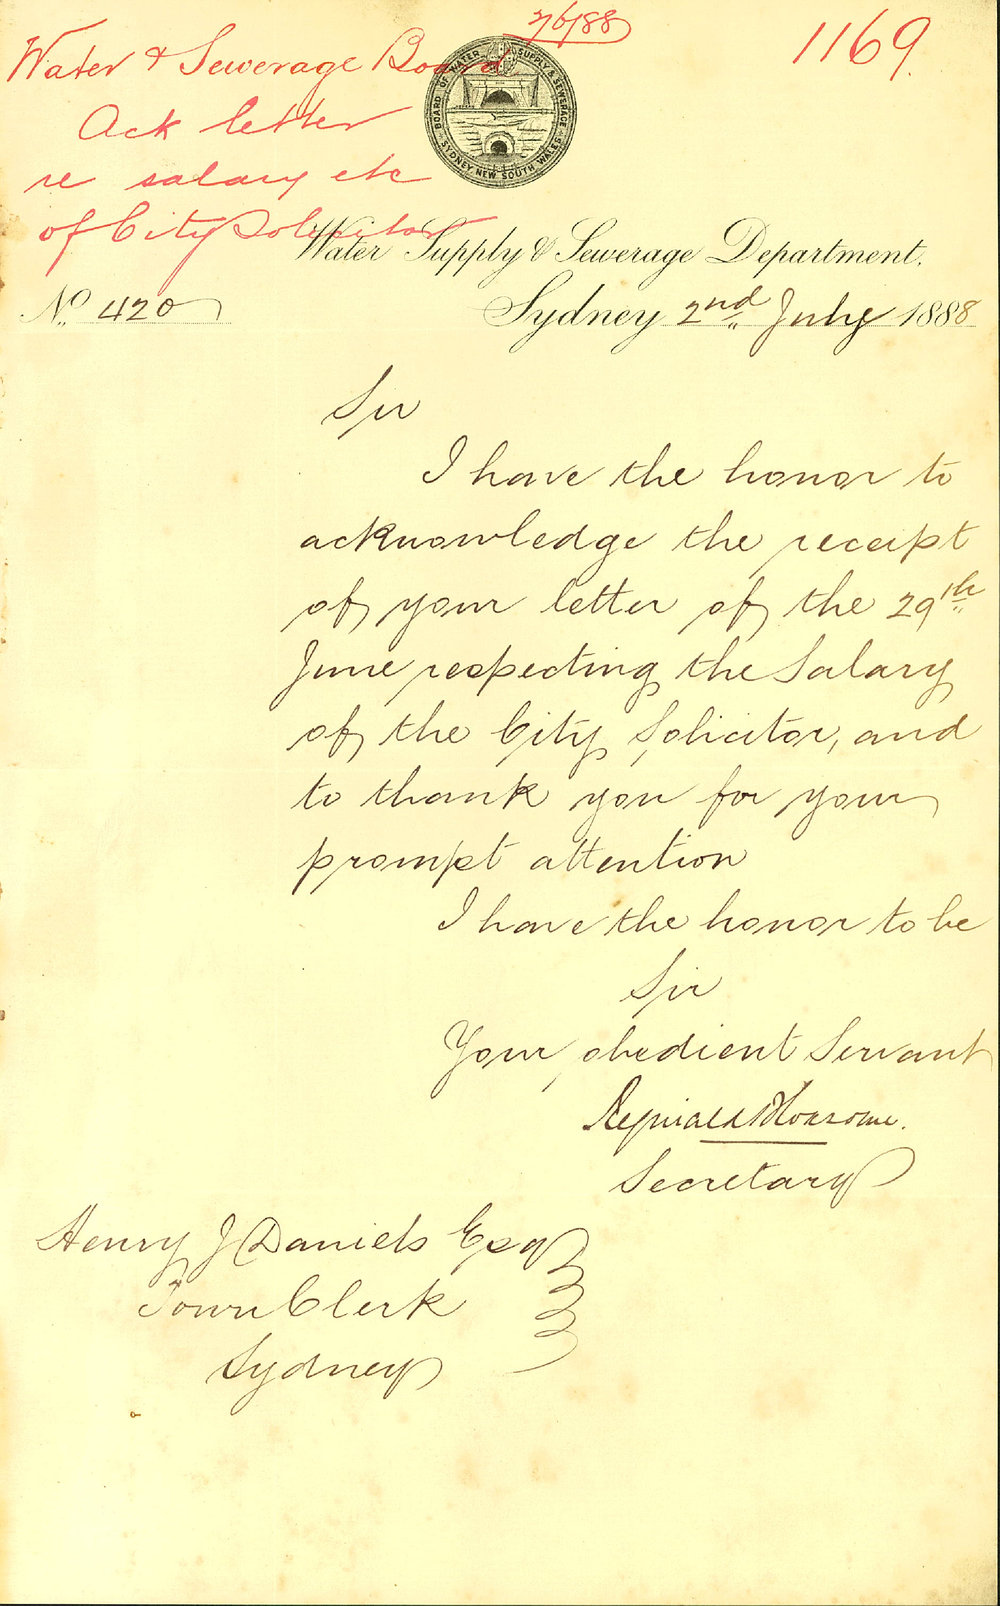 Water & Sewerage Board
1169
Ack letter
re salary etc
of City Solicitor
BOARD OF WATER SUPPLY & SEWERAGE
SYDNEY NEW SOUTH WALES
Water Supply & Sewerage Department.
No. 420
Sydney 2nd July 1888
Sir
I have the honor to
acknowledge the receipt
of your letter of the 29th
June respecting the Salary
of the City Solicitor, and
to thank you for your
prompt attention
I have the honor to be
Sir
Your obedient Servant
Secretary
Henry J Daniels Esq
Town Clerk
Sydney